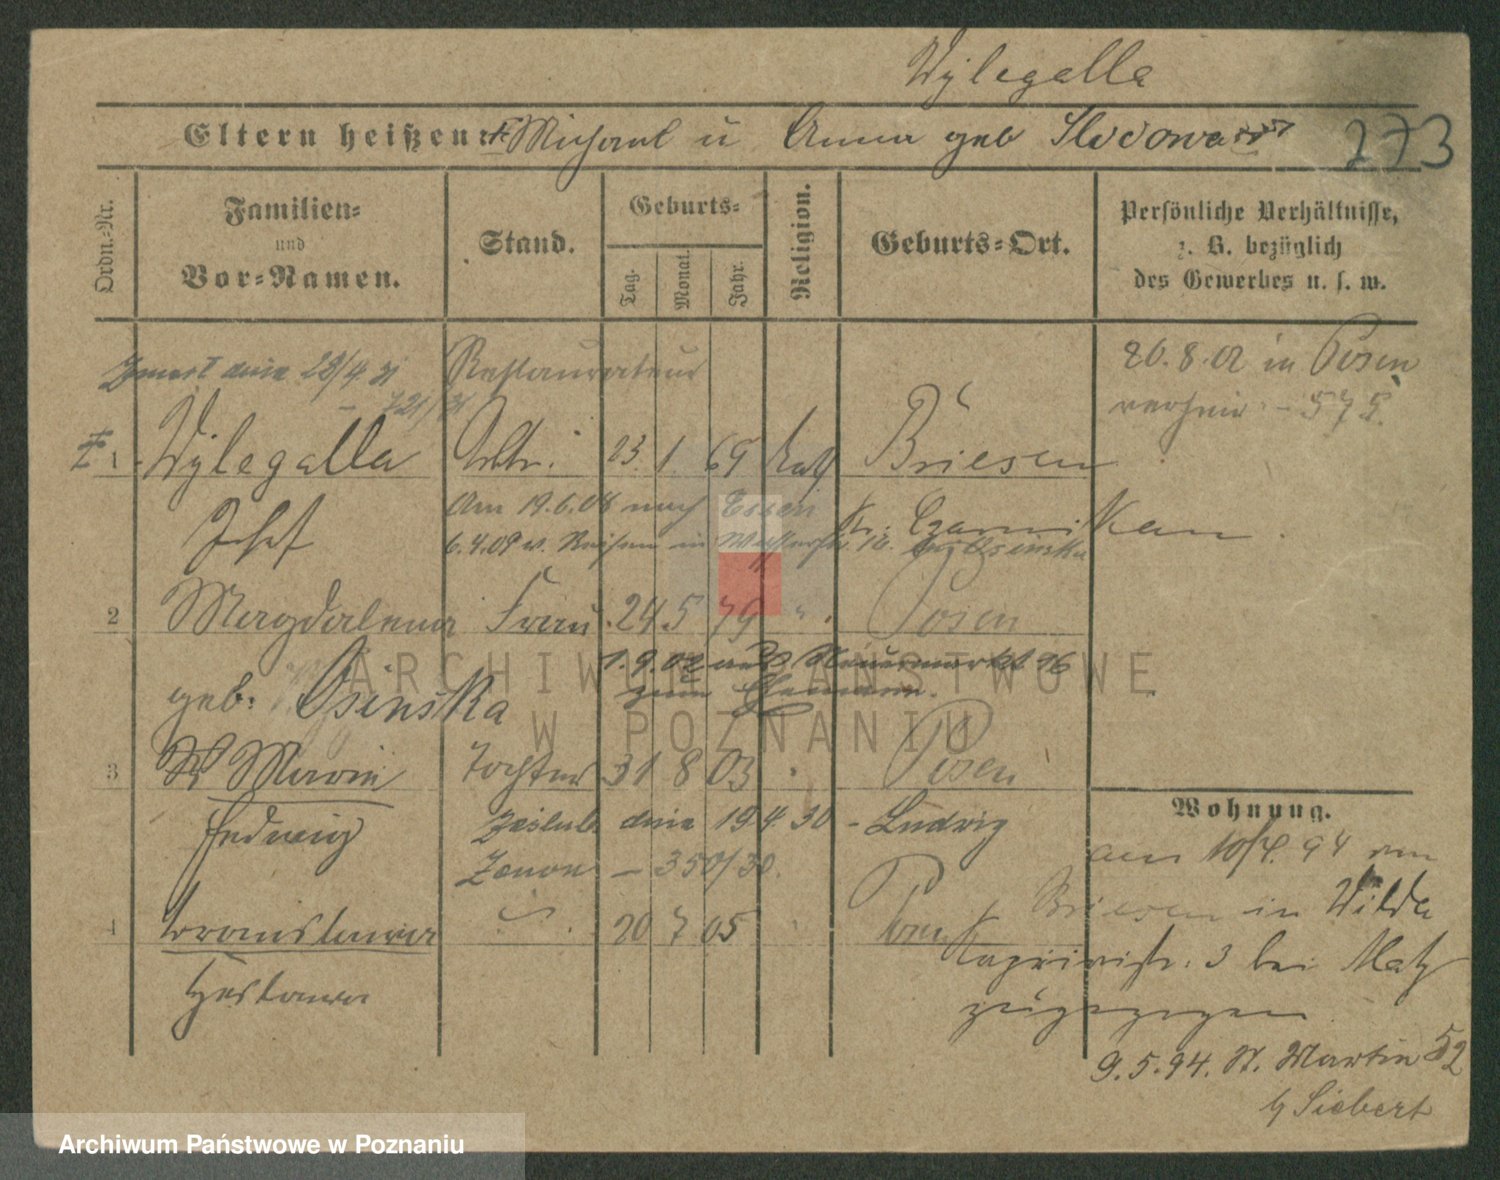 Wylegalla
Eltern heißen: Michael u Anna geb
273
Ordn.-Nr.
Familien-
und
Vor-Namen.
Stand.
Geburts-
Tag.
Monat.
Jahr.
Religion.
Geburts-Ort.
Persönliche Verhältnisse,
z. B. bezüglich
des Gewerbes u. s. w.
Zmarł dnia 28/4 31
721/31
Restaurateur
26.8.02 in Posen
verheir – 575.
1 Wylegalla 23. 1 69 kath Briesen
Josef
Am 19.6.08 nach Essen
Kr. Czarnikau
6.4.09 v. Reisen in 12. Osinska
2 Magdalena Frau 24 5 79 " Posen
1.9.02 auf Neuermarkt 16
zum Ehemann.
geb. Osinska
3 Maria Tochter 31 8 03 Posen
Hedwig
Zaślub. dnia 19 4. 30 – Ludwig
Zenon – 350/30.
4 Bronislawa 20 7 05 Posen
Wohnung.
am 10/4. 94 von
Briesen in Wilda
Kaprivistr. 3 bei Matz
zugezogen
9.5.94. St. Martin 52
b/ Siebert
ARCHIWUM PAŃSTWOWE
W POZNANIU
Archiwum Państwowe w Poznaniu